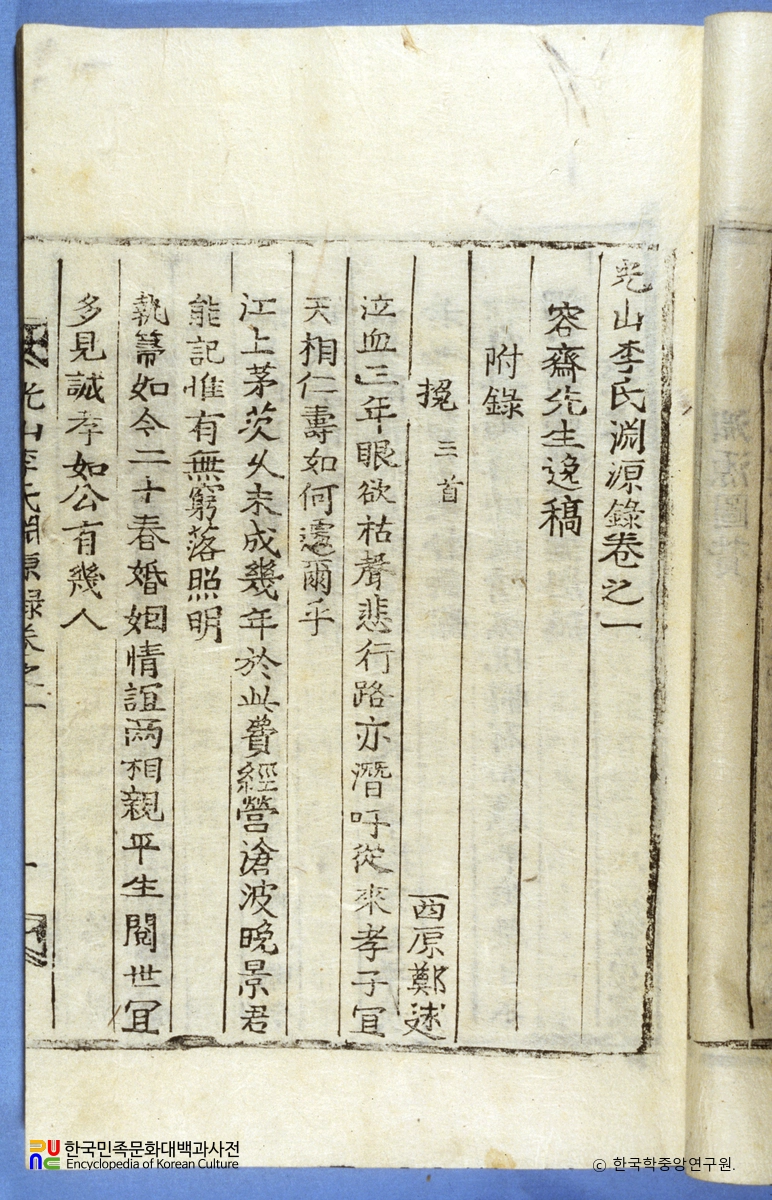 光山李氏淵源錄卷之一
容齋先生逸稿
附錄
挽 三首
西原鄭逑
泣血三年眼欲枯聲悲行路亦潛吁從來孝子宜
天相仁壽如何遽爾乎
江上茅茨久未成幾年於此費經營滄波晩景君
能記惟有無窮落照明
執筭如令二十春婚姻情誼兩相親平生閱世宜
多見誠孝如公有幾人
光山李氏淵源錄卷之一
一
한국민족문화대백과사전
Encyclopedia of Korean Culture
© 한국학중앙연구원.